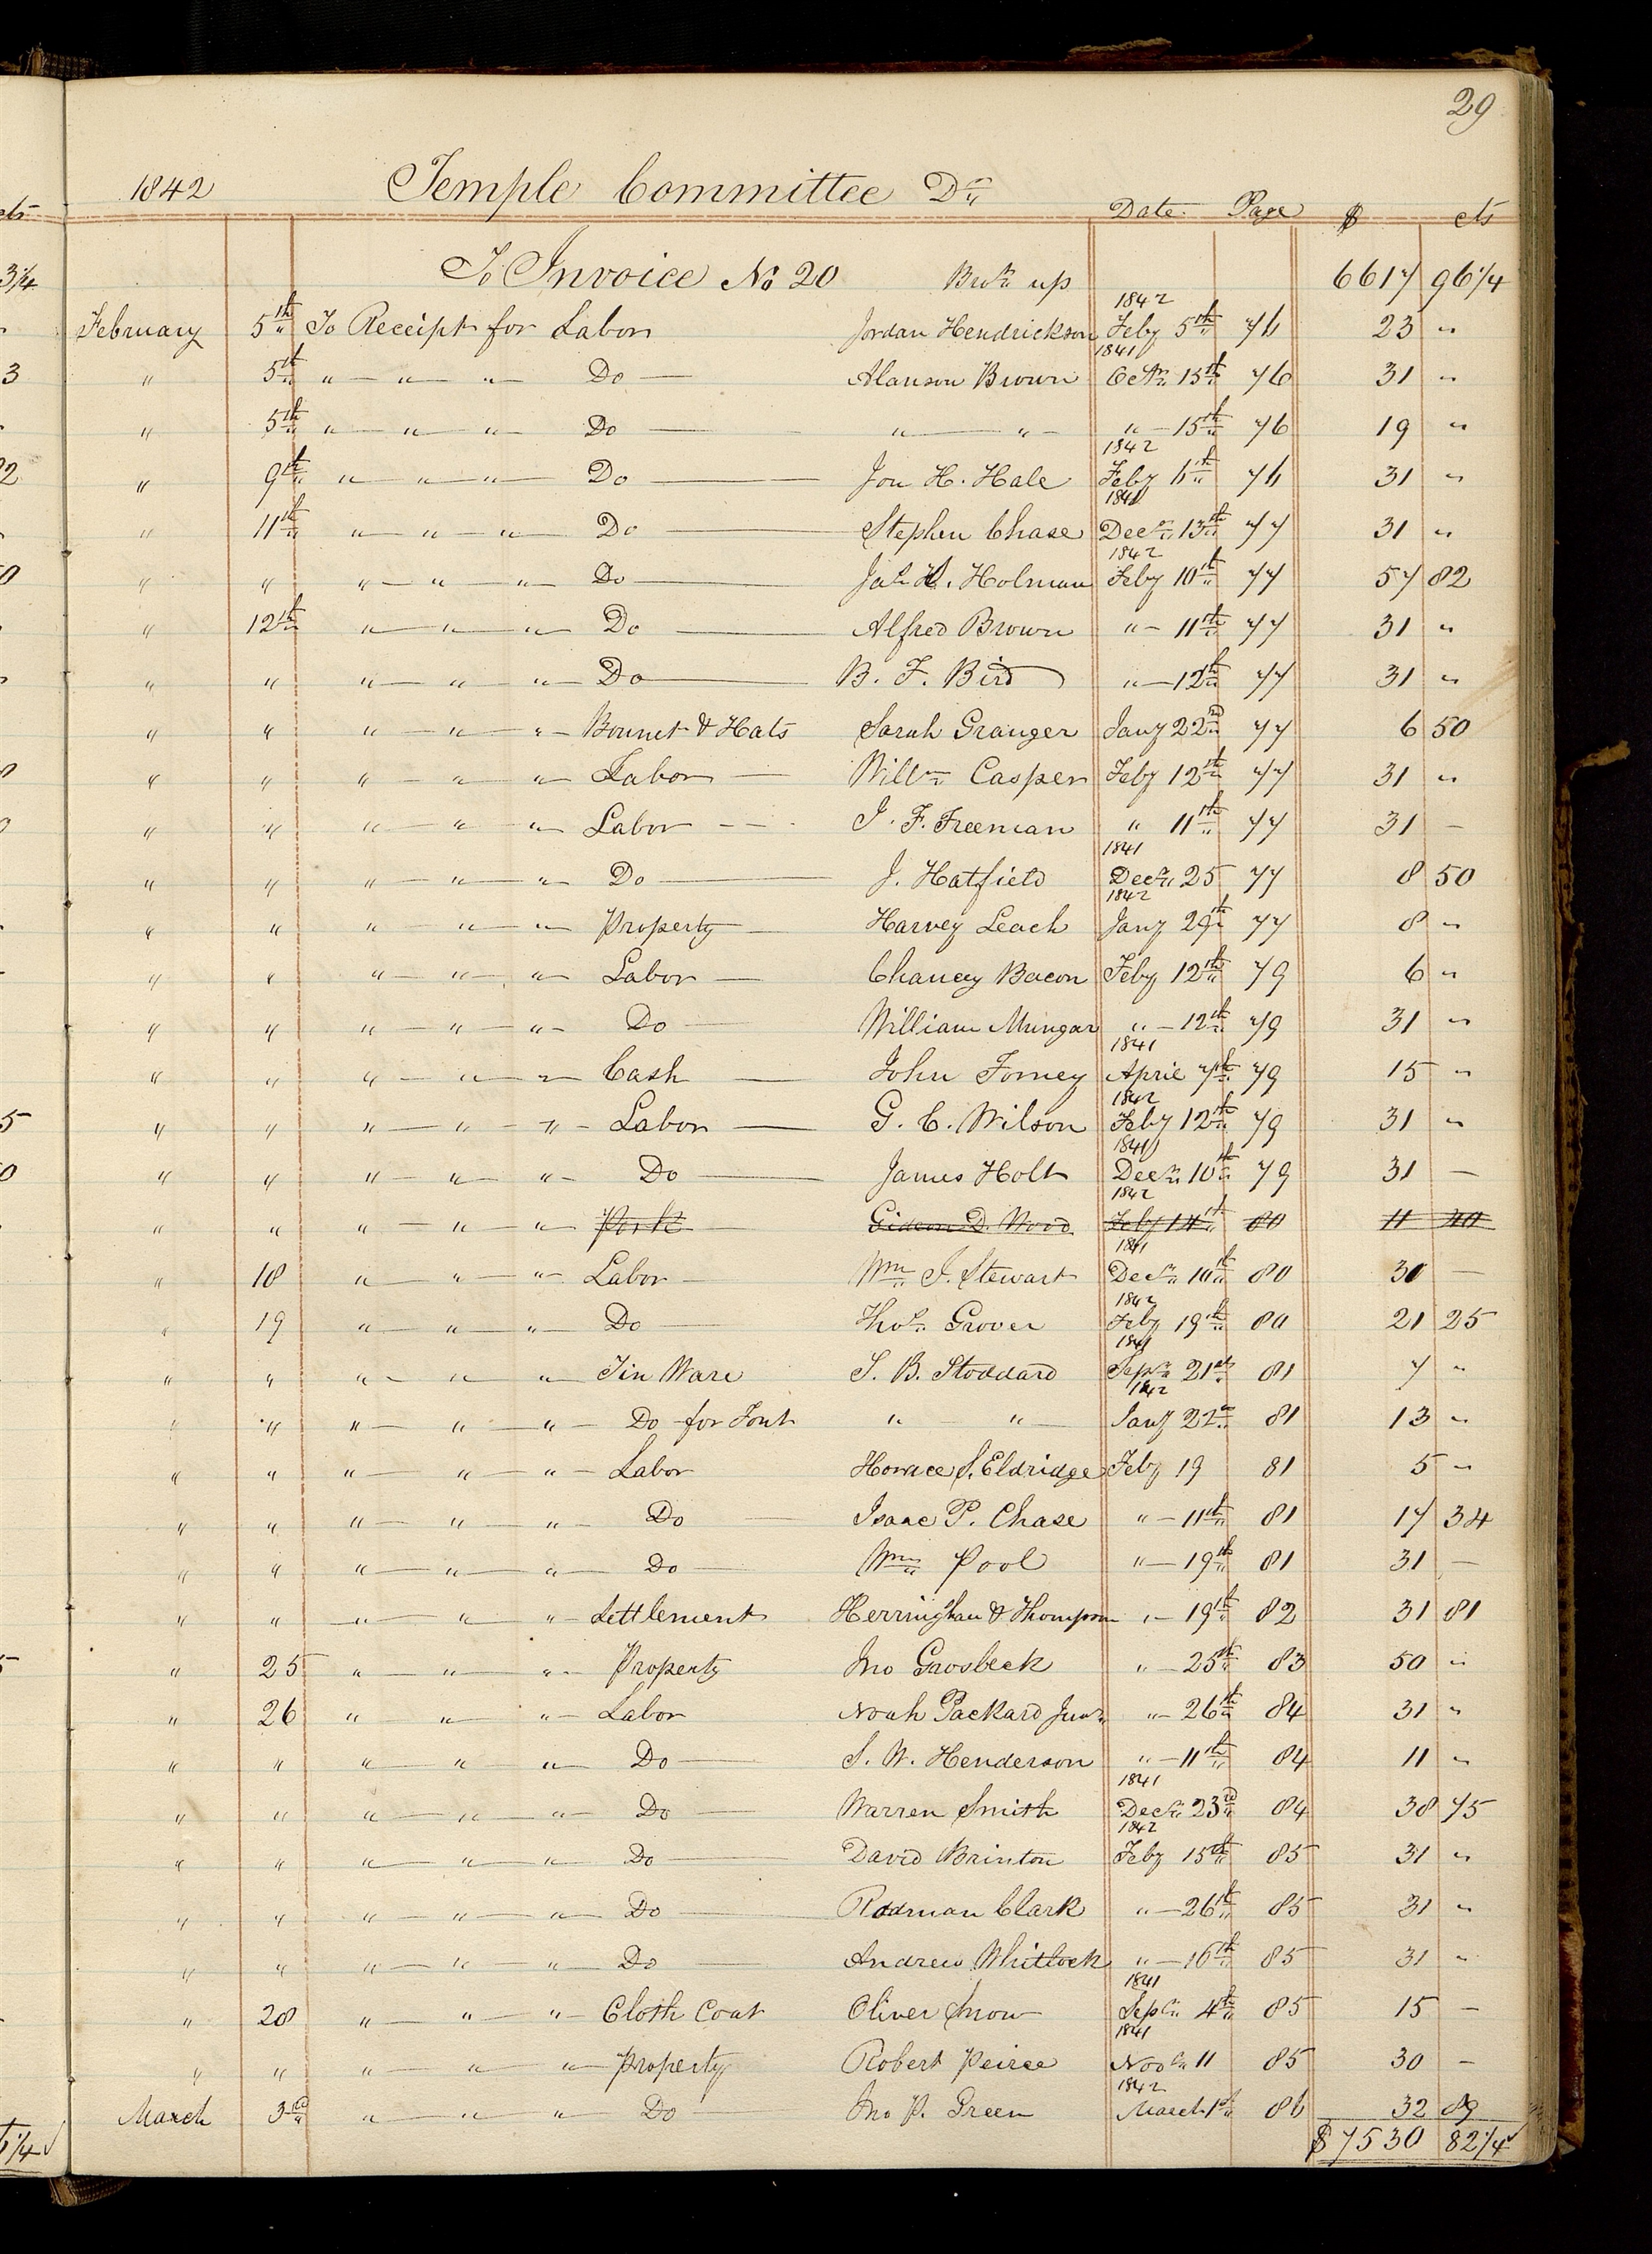 29
1842 Temple Committee Dr
Date Page $ cts
To Invoice No 20 Brot up 6617 96 1/4
1842
February 5th To Receipt for Labor Jordan Hendrickson Feby 5th 76 23 "
1841
" 5th " " " Do Alanson Brown Octr 15th 76 31 "
" 5th " " " Do " " " 15th 76 19 "
1842
" 9th " " " Do Jon H. Hale Feby 6th 76 31 "
1841
" 11th " " " Do Stephen Chase Decr 13th 77 31 "
1842
" " " " " Do Jas S. Holman Feby 10th 77 57 82
" 12th " " " Do Alfred Brown " 11th 77 31 "
" " " " " Do B. F. Bird " 12th 77 31 "
" " " " " Bonnet & Hats Sarah Granger Jany 22nd 77 6 50
" " " " " Labor Willm Casper Feby 12th 77 31 "
" " " " " Labor J. F. Freeman " 11th 77 31 –
1841
" " " " " Do J. Hatfield Decr 25 77 8 50
1842
" " " " " Property Harvey Leach Jany 29th 77 8 "
" " " " " Labor Chancy Bacon Feby 12th 79 6 "
" " " " " Do William Mungar " 12th 79 31 "
1841
" " " " " Cash John Forney April 7th 79 15 "
1842
" " " " " Labor G. C. Wilson Feby 12th 79 31 "
1841
" " " " " Do James Holt Decr 10th 79 31 –
1842
" " " " " Pork Gideon D. Wood Feby 14th 80 11 40
1841
" 18 " " " Labor Wm J. Stewart Decr 10th 80 30 –
1842
" 19 " " " Do Thos Grover Feby 19th 80 21 25
1841
" " " " " Tin Ware S. B. Stoddard Sepr 21st 81 7 "
1842
" " " " " Do for Font " " Jany 22nd 81 13 "
" " " " " Labor Horace S. Eldridge Feby 19 81 5 "
" " " " " Do Isaac P. Chase " 11th 81 17 34
" " " " " Do Wm Pool " 19th 81 31 –
" " " " " Settlement Herringhan & Thompson " 19th 82 31 81
" 25 " " " Property Jno Grosbeck " 25th 83 50 "
" 26 " " " Labor Noah Packard Junr " 26th 84 31 "
" " " " " Do S. W. Henderson " 11th 84 11 "
1841
" " " " " Do Warren Smith Decr 23rd 84 38 75
1842
" " " " " Do David Brinton Feby 15th 85 31 "
" " " " " Do Rodman Clark " 26th 85 31 "
" " " " " Do Andrew Whitlock " 16th 85 31 "
1841
" 28 " " " Cloth Coat Oliver Snow Sepr 4th 85 15 –
1841
" " " " " Property Robert Peirce Novr 11 85 30 –
1842
March 3rd " " " Do Jno P. Green March 1st 86 32 89
$7530 82 1/4